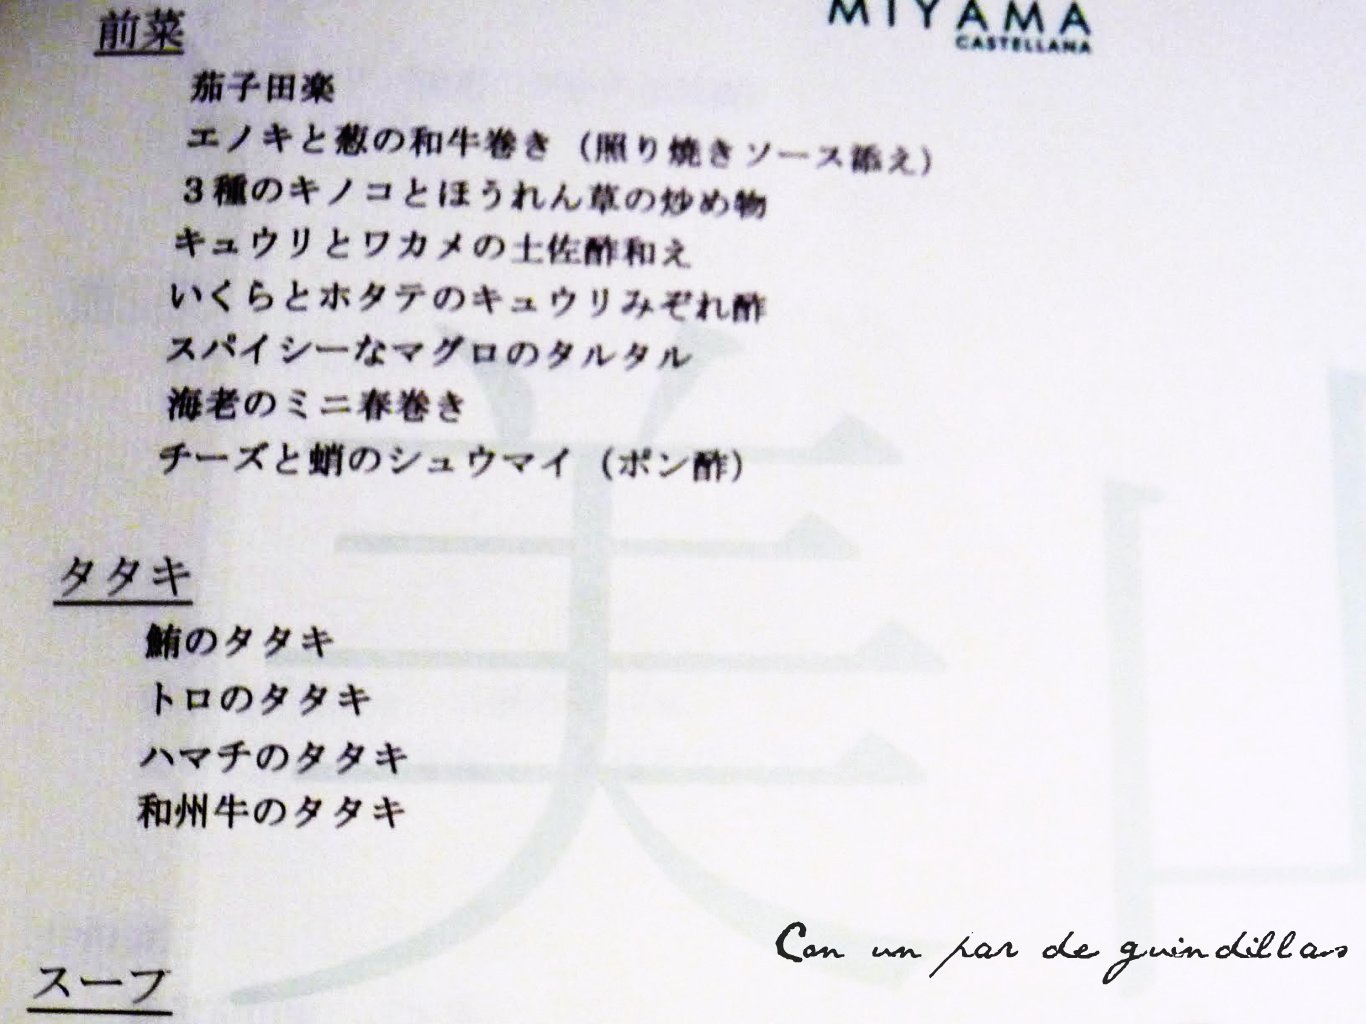 MIYAMA
CASTELLANA
前菜
茄子田楽
エノキと葱の和牛巻き（照り焼きソース添え）
３種のキノコとほうれん草の炒め物
キュウリとワカメの土佐酢和え
いくらとホタテのキュウリみぞれ酢
スパイシーなマグロのタルタル
海老のミニ春巻き
チーズと蛸のシュウマイ（ポン酢）
タタキ
鮪のタタキ
トロのタタキ
ハマチのタタキ
和州牛のタタキ
スープ
美山
Con un par de guindillas